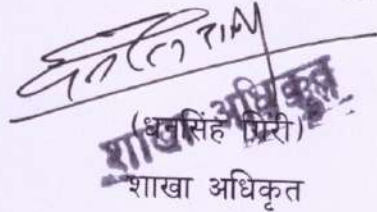 शाखा अधिकृत
(धनसिंह गिरी)
शाखा अधिकृत